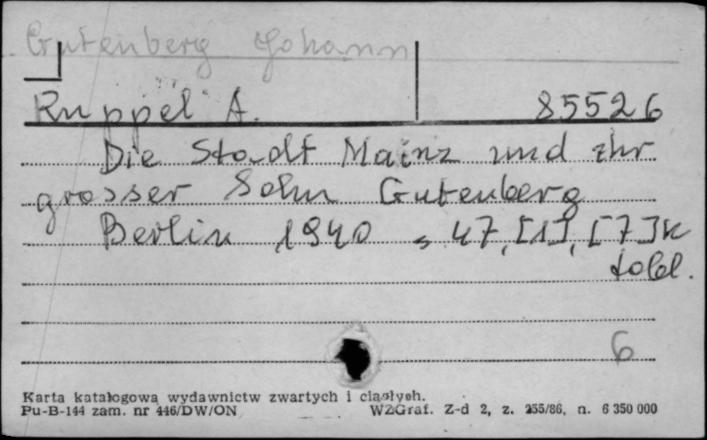 Gutenberg Johann
Ruppel A. 85526
Die Stadt Mainz und ihr
grosser Sohn Gutenberg
Berlin 1940 s 47, [1], [7] k
tabl.
6
Karta katalogowa wydawnictw zwartych i ciągłych.
Pu-B-144 zam. nr 446/DW/ON WZGraf. Z-d 2, z. 255/86, n. 6 350 000